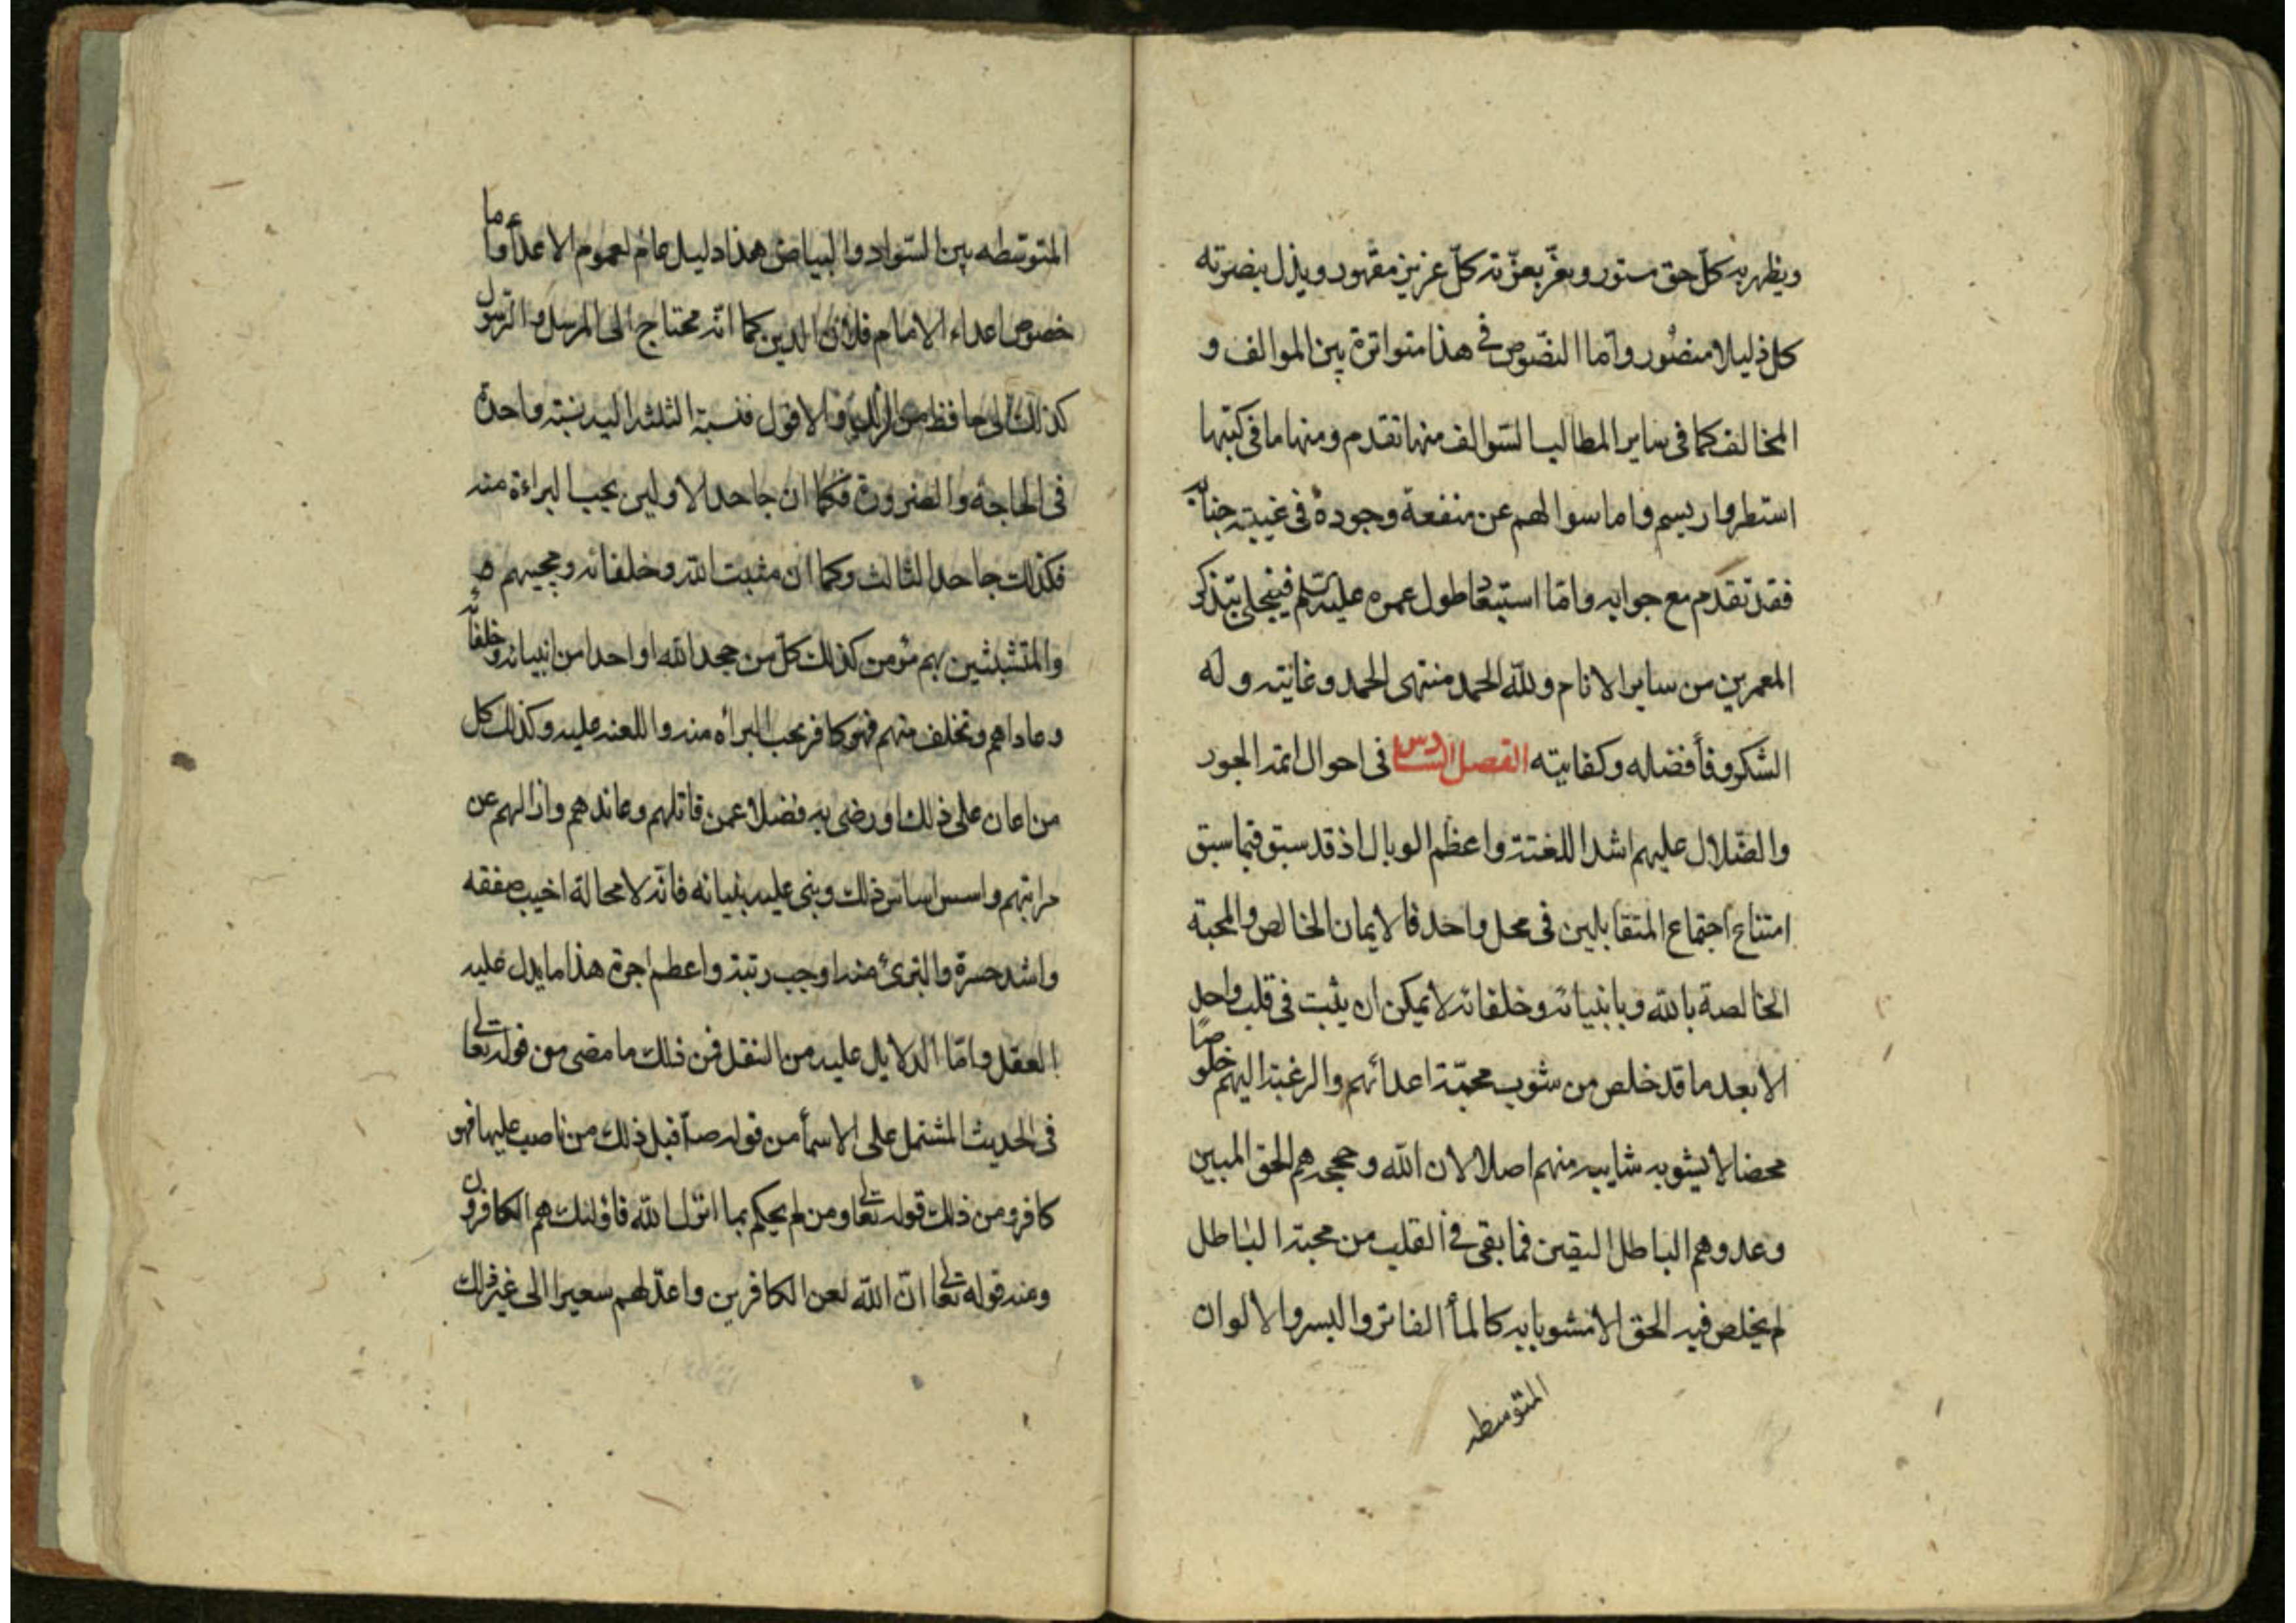 ويظهر به كلّ حق مستور ويعزّ بعزّته كلّ عزيز مقهور ويذل بنصرته
كل ذليلا منصور وامّا النصّوص فى هذا متواترة بين الموالف و
المخالف كما فى ساير المطالب السّوالف منها تقدم ومنها ما فى كتبها
استطروا ريسم واما سوالهم عن منفعة وجوده فى غيبته جنابه
فقد تقدم مع جوابه وامّا استبعاد طول عمره عليه السّلم فينجلى بتذكر
المعمرين من ساير الانام ولله الحمد منتهى الحمد وغايته وله
الشكر وفأ فضاله وكفايته الفصل السادس فى احوال ائمة الجور
والضّلال عليهم اشد اللغتة واعظم الوبال اذ قد سبق فيما سبق
امتناع اجتماع المتقابلين فى محل واحد فالايمان الخالص والمحبة
الخالصة بالله وبانبيائه وخلفائه لا يمكن ان يثبت فى قلب واحد
الا بعد ما قد خلص من شوب محبّة اعدائهم والرغبة اليهم خلوصًا
محضا لا يشوبه شايبه منهم اصلا لان الله وحججه هم الحق المبين
وعدوهم الباطل اليقين فما بقى فى القلب من محبة الباطل
لم يخلص فيه الحق الا مشوبا به كالمأ الفاتر والبسر والالوان
المتوسطه
المتوسّطه بين السّواد والبياض هذا دليل عام لعموم الاعدأ واما
خصوص اعداء الامام فلان الدين كما انّه محتاج الى المرسل والرّسول
كذلك الى حافظ من الزلل والافول فنسبة الثلثة اليه نسبته واحدة
فى الحاجة والضرورة فكما ان جاحد الاولين يجب البراءة منه
فكذلك جاحد الثالث وكما ان مثبت الله وخلفائه ومحبيهم
والمتشبثين بهم مؤمن كذلك كلّ من جحد الله او احدا من انبيائه وخلفائه
وعاداهم وتخلف منهم فهو كافر يجب البرأه منه واللعنه عليه وكذلك كل
من اعان على ذلك او رضى به فضلا عمن قاتلهم وعاندهم وازالهم عن
مراتبهم واسس اساس ذلك وبنى عليه بنيانه فانّه لا محالة اخيب صفقه
واشد حسرة والتبرئ منه اوجب رتبة واعظم اجرة هذا ما يدل عليه
العقل وامّا الدلايل عليه من النقل فمن ذلك ما مضى من قوله تعالى
فى الحديث المشتمل على الاسمأ من قوله صلّا قبل ذلك من ناصب عليها فهو
كافر ومن ذلك قوله تعالى ومن لم يحكم بما انزل الله فاولئك هم الكافرون
وعنه قوله تعالى انّ الله لعن الكافرين واعدّ لهم سعيرا الى غير ذلك